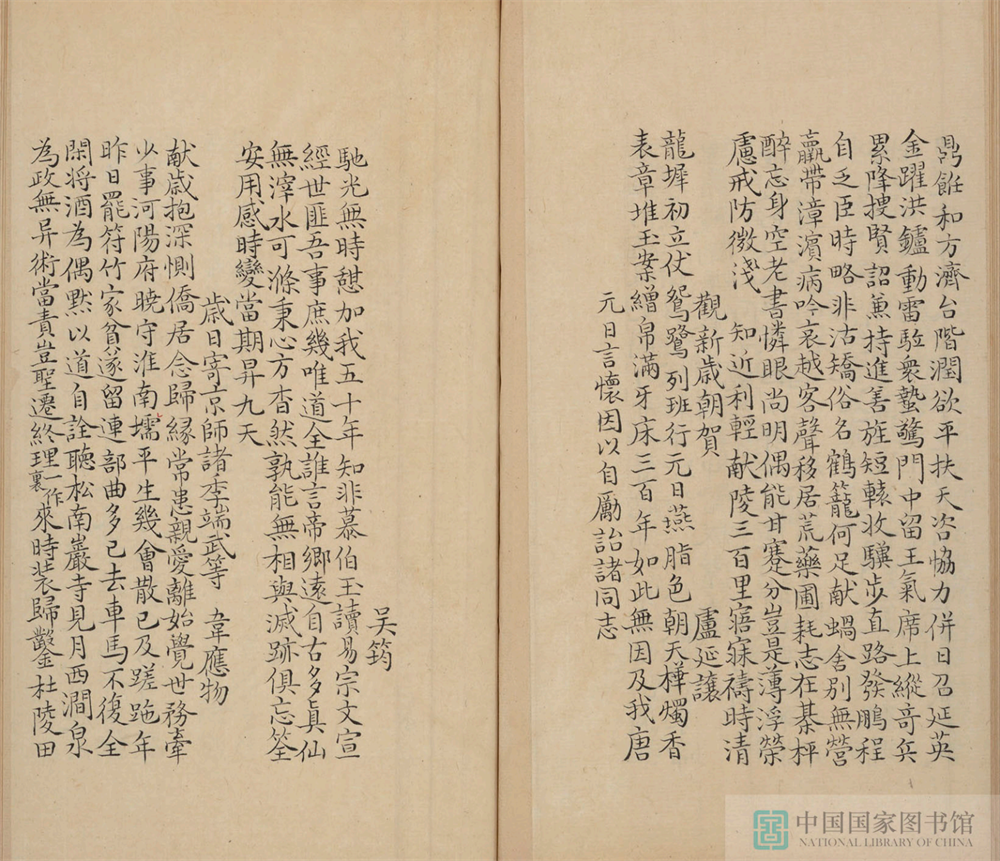 鼎飪和方濟台階潤欲平扶天咨協力併日召延英
金躍洪鑪動雷駈衆蟄驚門中留王氣席上縱奇兵
累降搜賢詔蒹持進善旌短轅收驥步直路發鵬程
自乏匡時略非沽矯俗名鶴籠何足献蝸舍別無營
羸帶漳濵病吟哀越客聲移居荒藥圃耗志在棊枰
醉忘身空老書憐眼尚明偶能甘蹇分豈是薄浮榮
慮戒防微淺 知近利輕献陵三百里寤寐禱時清
觀新歲朝賀 盧延讓
龍墀初立仗鴛鷺列班行元日燕脂色朝天樺燭香
表章堆玉案繒帛滿牙床三百年如此無因及我唐
元日言懷因以自勵詒諸同志
吴筠
馳光無時憇加我五十年知非慕伯玉讀易宗文宣
經世匪吾事庶幾唯道全誰言帝鄉遠自古多眞仙
無滓水可滌秉心方杳然孰能無相與滅跡俱忘筌
安用感時變當期昇九天
歲日寄京師諸季端武等 韋應物
献歲抱深惻僑居念歸緣常患親愛離始覺世務牽
少事河陽府晚守淮南壖平生幾會散已及蹉跎年
昨日罷符竹家貧遂留連部曲多已去車馬不復全
閑将酒為偶默以道自詮聽松南巖寺見月西澗泉
為政無异術當責豈聖遷終理一作裏來時裝歸鑿杜陵田
中国国家图书馆
NATIONAL LIBRARY OF CHINA